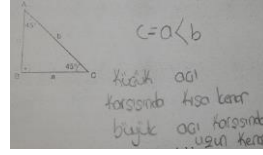 A
45°
b
c=a<b
45°
B
a
C
küçük açı
karşısında kısa kenar
büyük açı karşısında
uzun kena